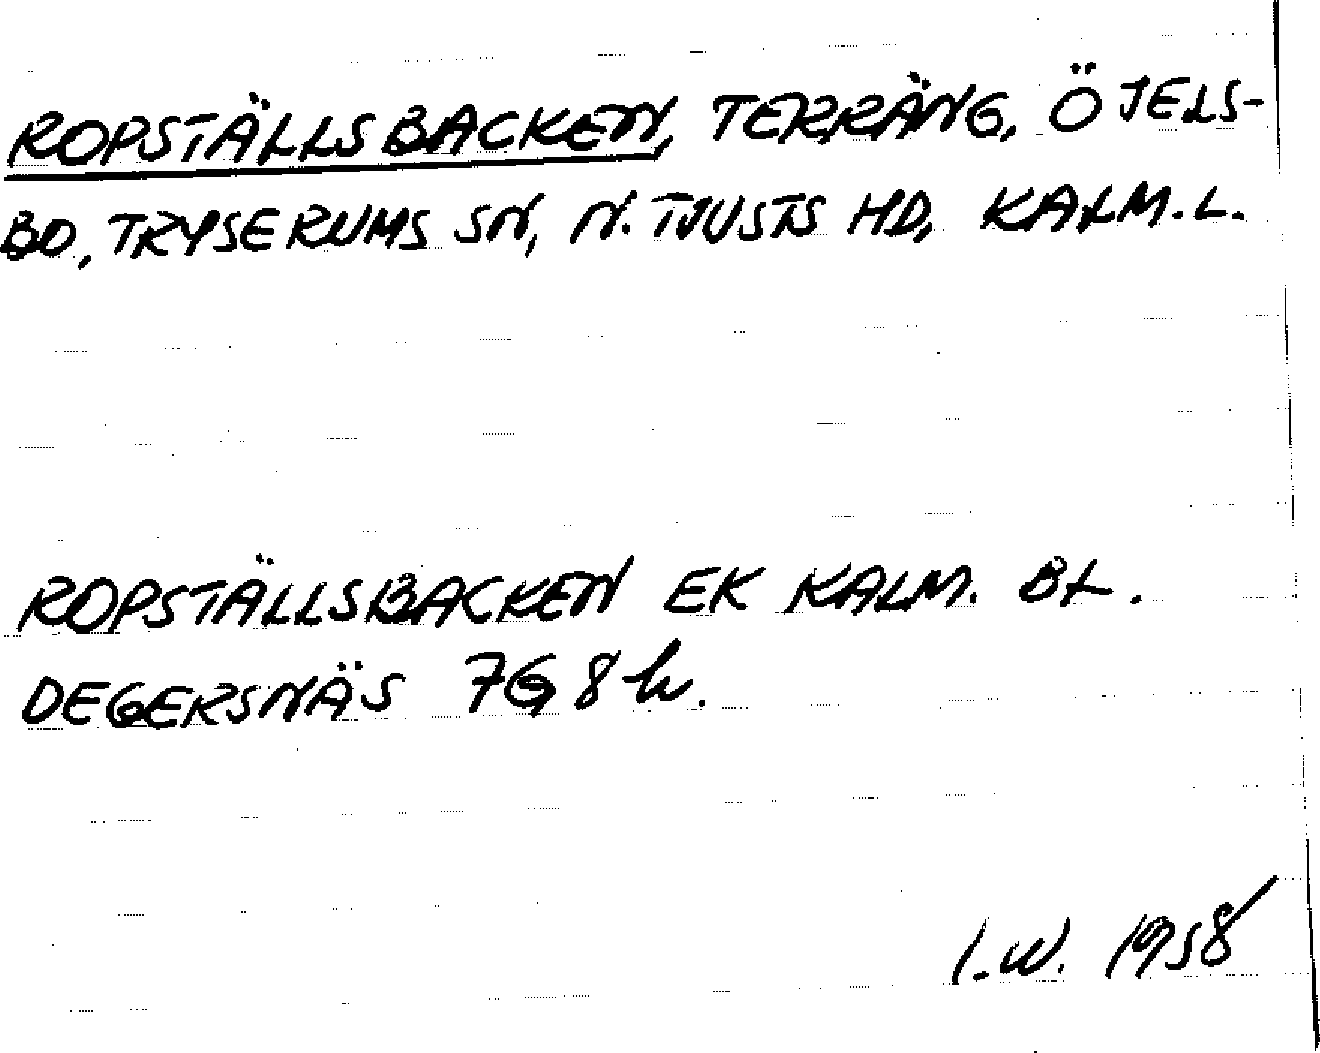 ROPSTÄLLSBACKEN, TERRÄNG, ÖJELS-
BO, TRYSERUMS SN, N. TJUSTS HD, KALM. L.
ROPSTÄLLSBACKEN EK KALM. BL.
DEGERSNÄS 7G 8h.
I.W. 1958